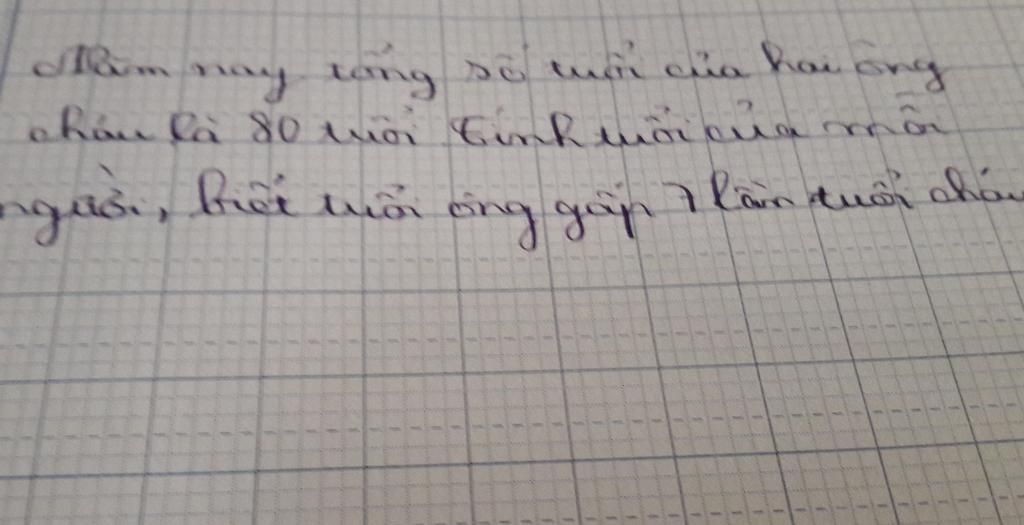 Năm nay tổng số tuổi của hai ông
cháu là 80 tuổi tính tuổi của mỗi
người, biết tuổi ông gấp 7 lần tuổi cháu